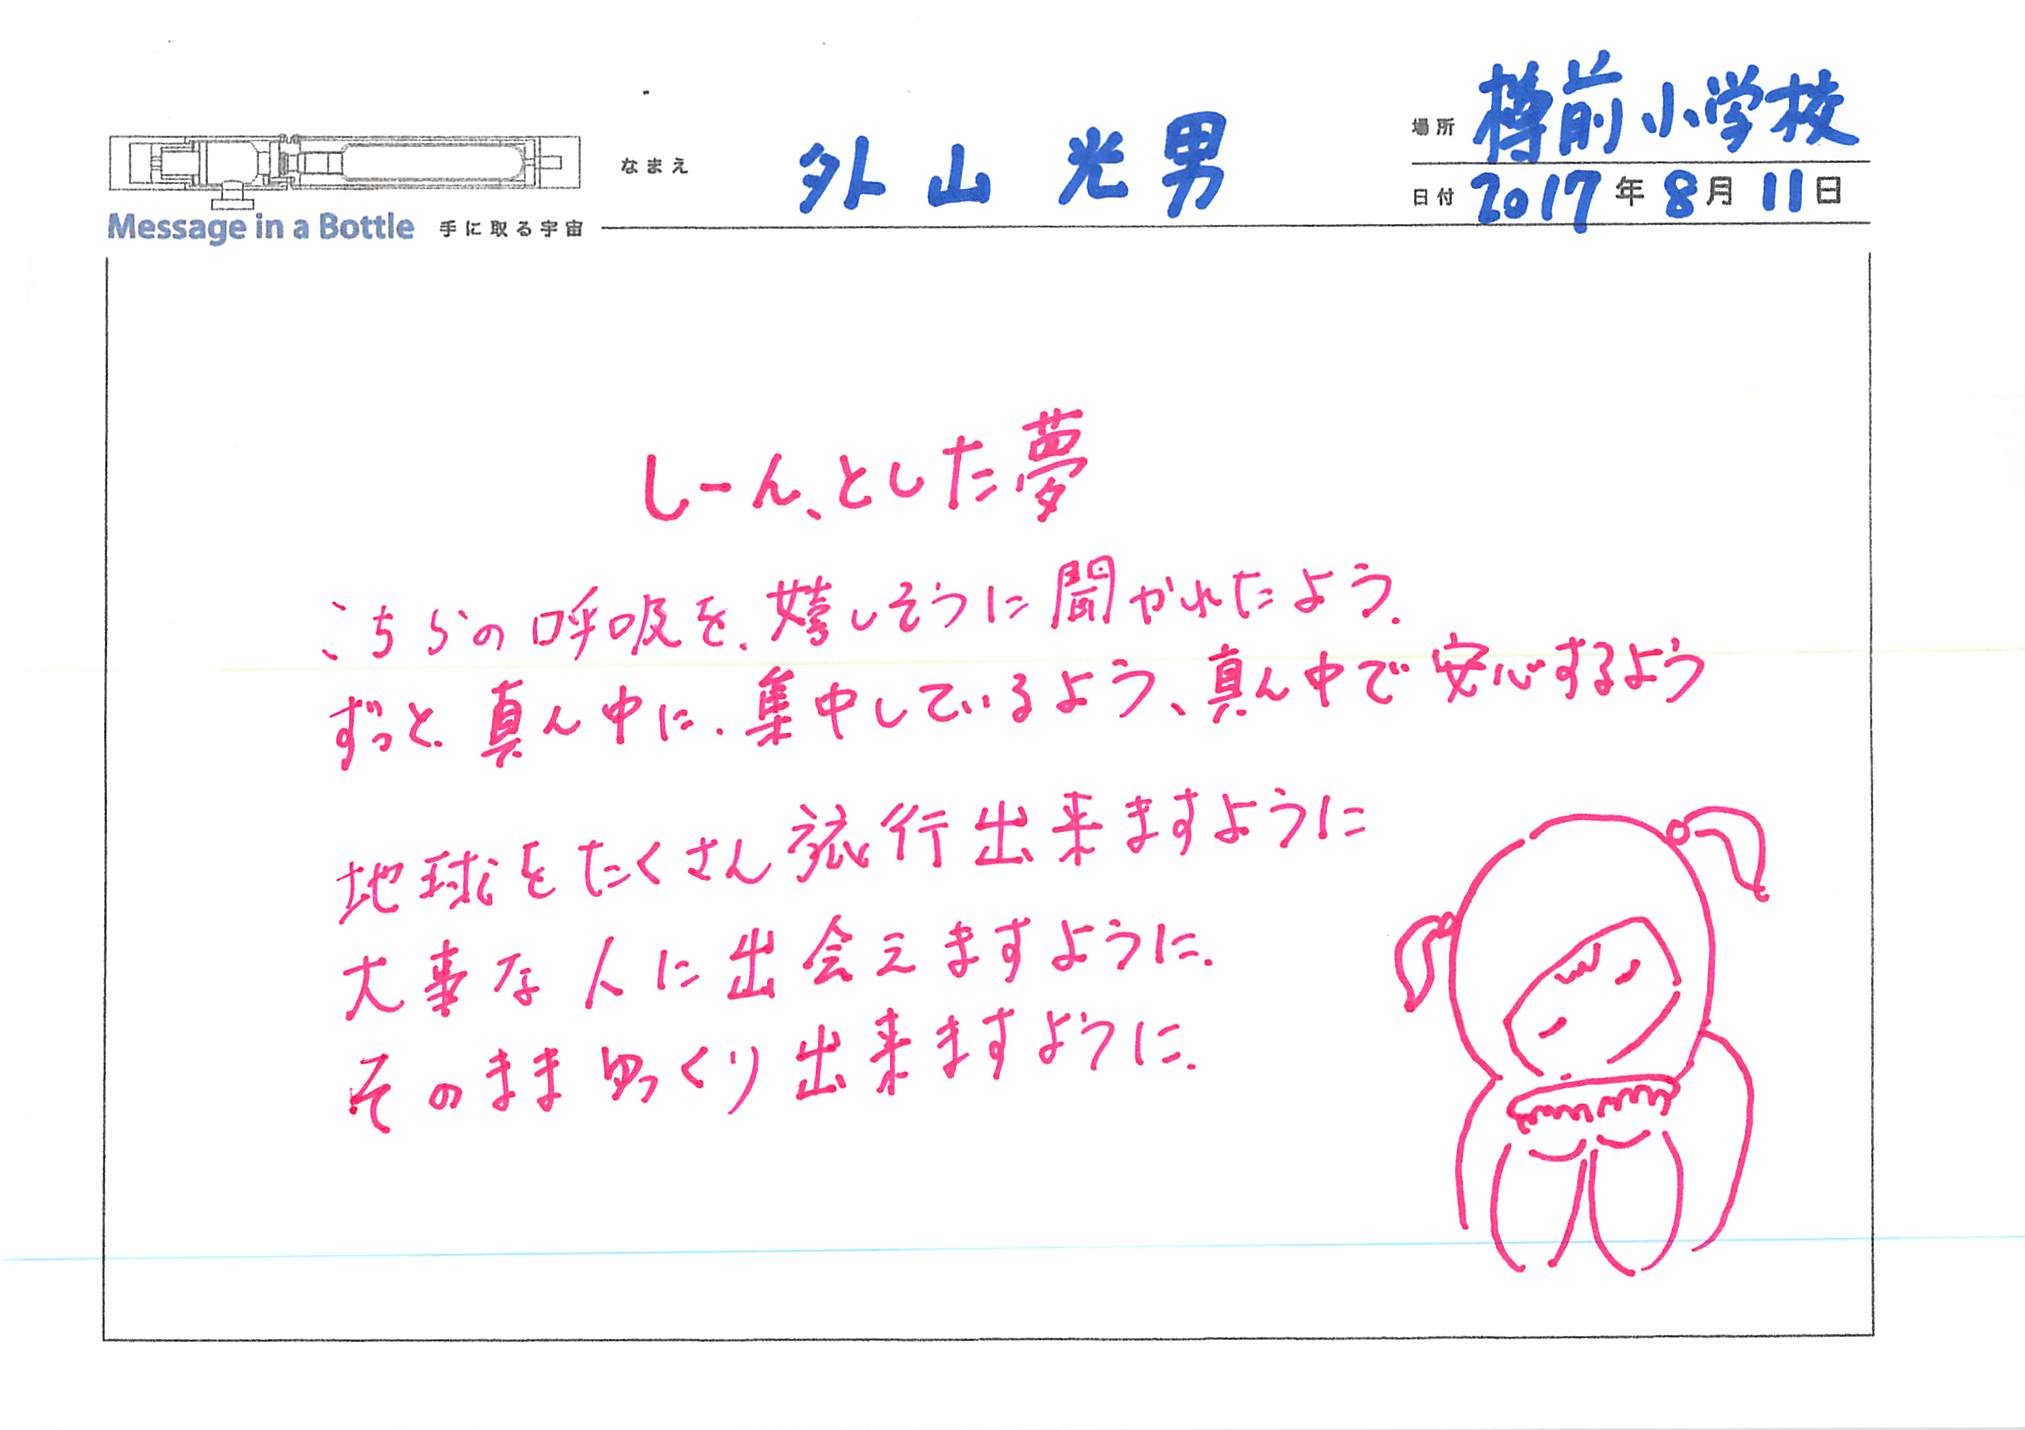 場所 樽前小学校
なまえ 外山 光男
日付 2017年8月11日
Message in a Bottle 手に取る宇宙
しーん、とした夢
こちらの呼吸を、嬉しそうに聞かれたよう、
ずっと、真ん中に、集中しているよう、真ん中で安心するよう
地球をたくさん旅行出来ますように
大事な人に出会えますように、
そのままゆっくり出来ますように、